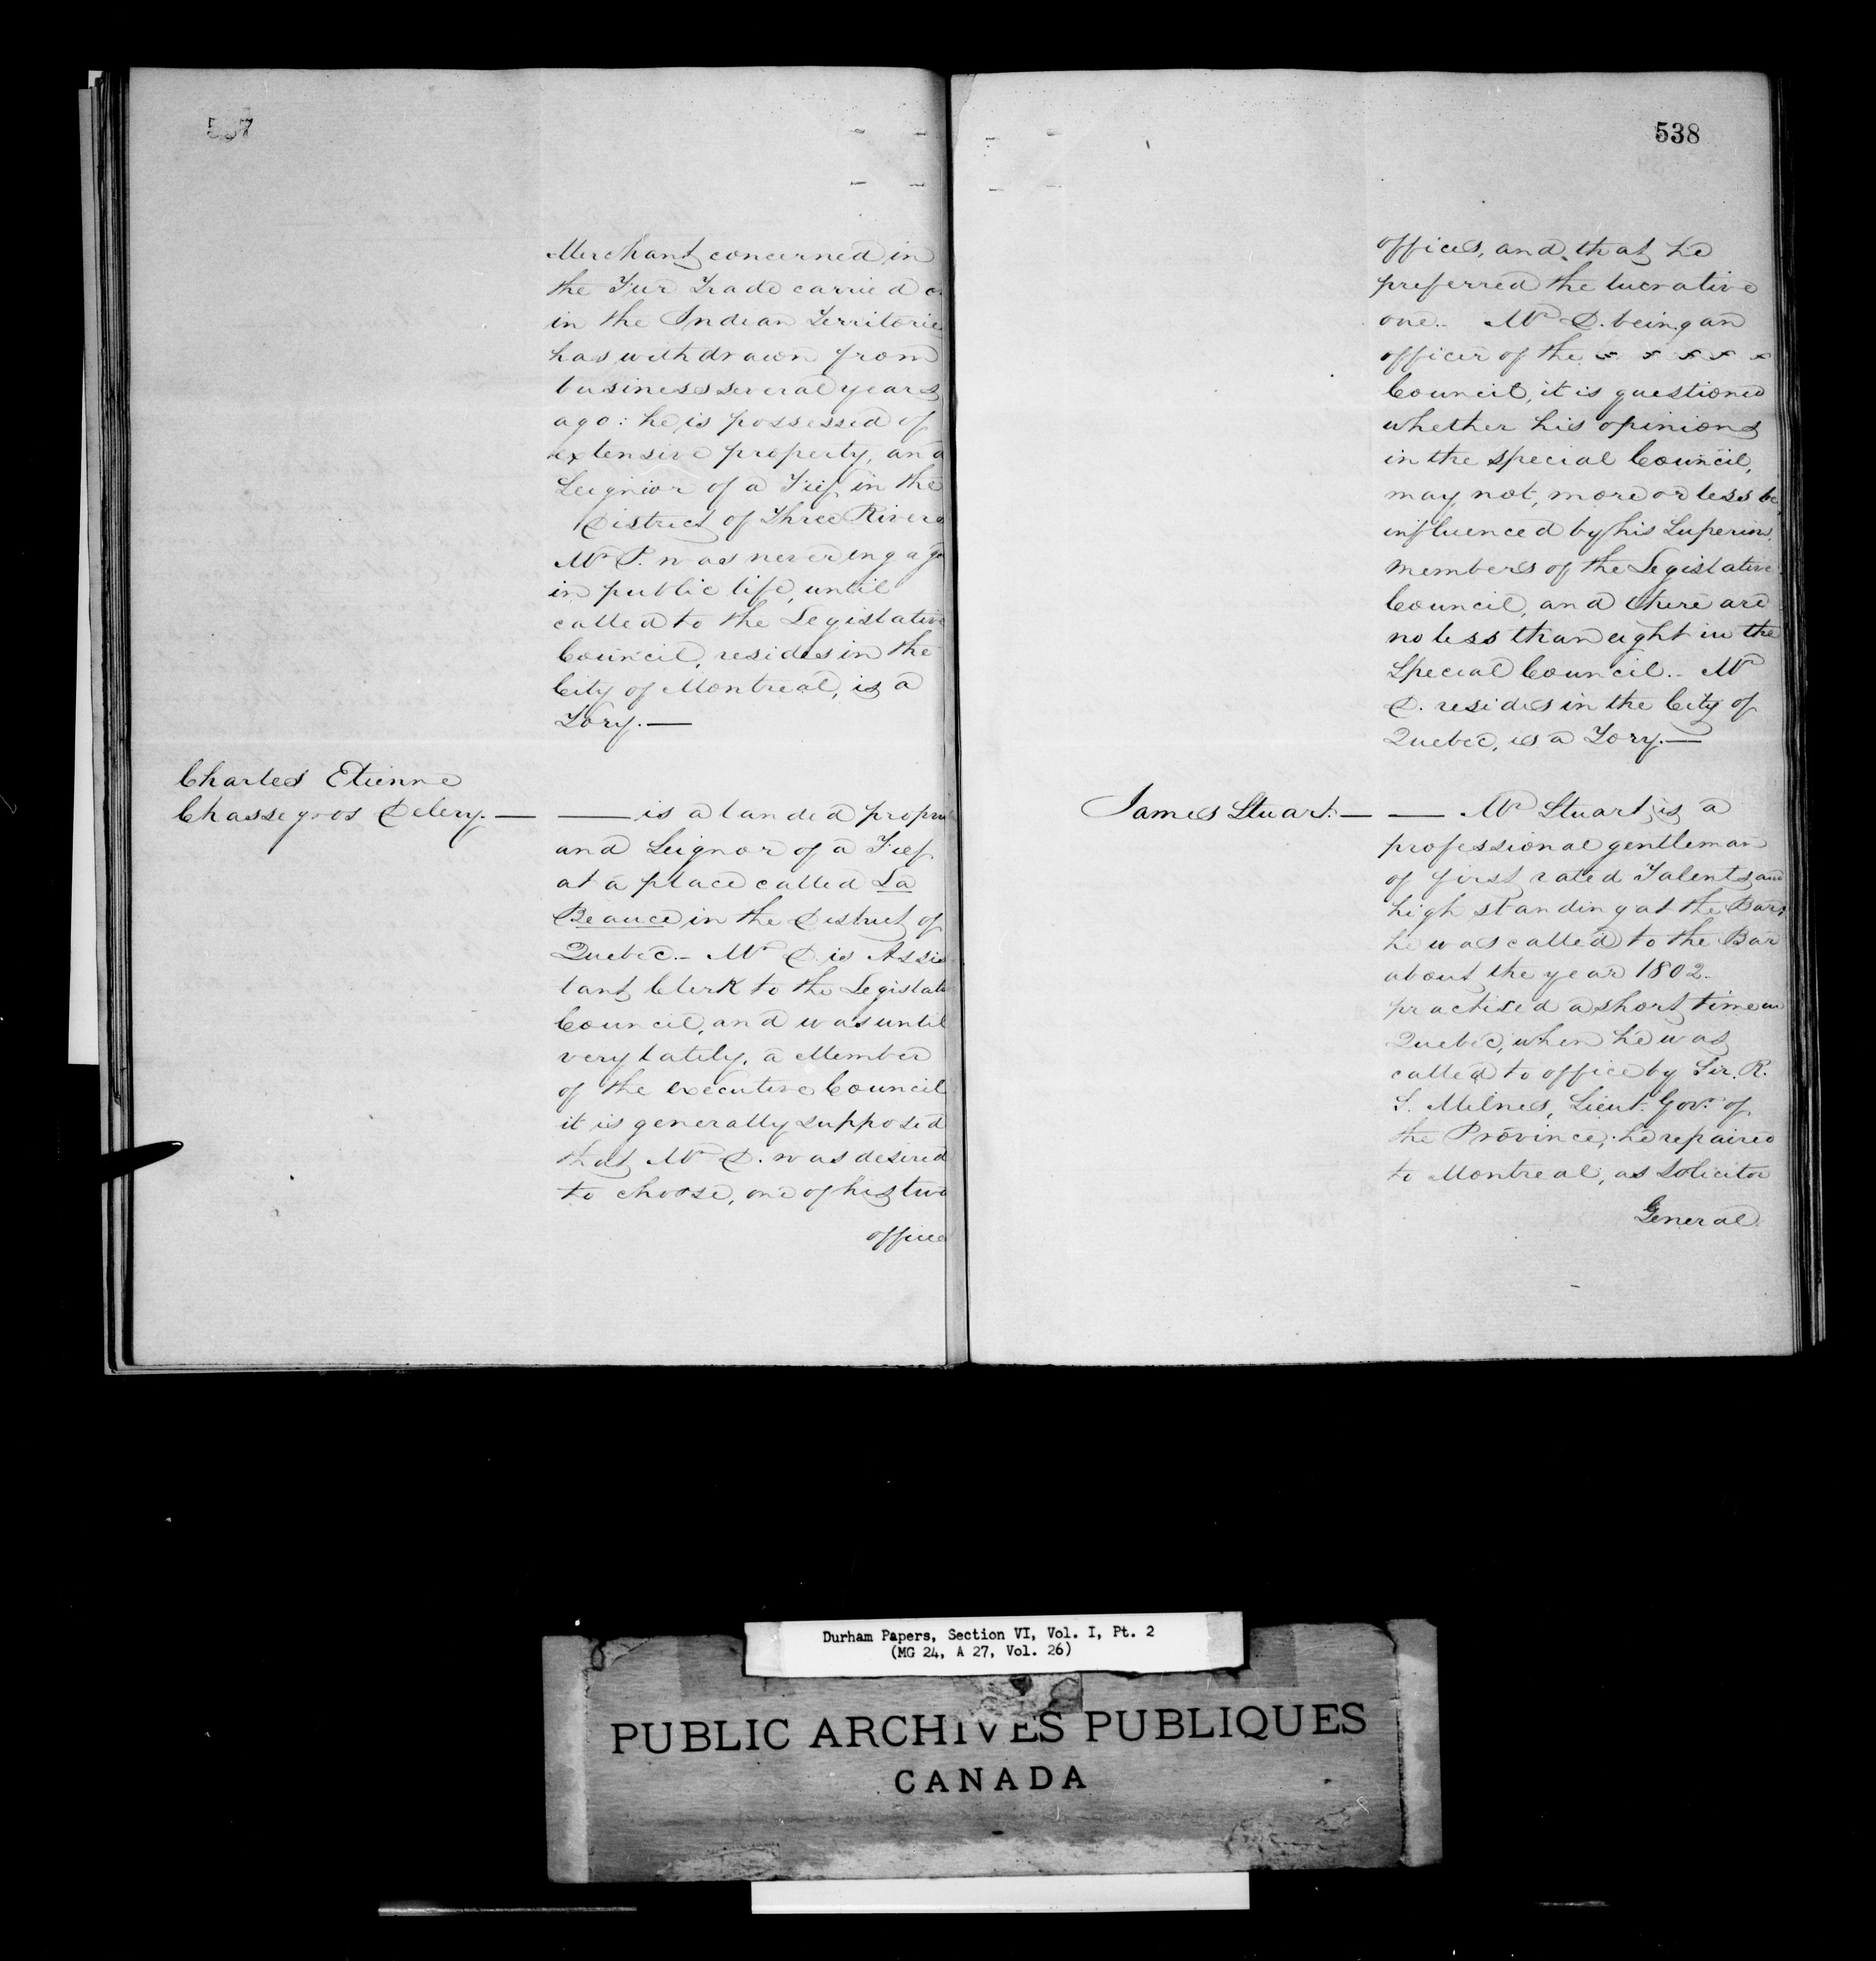 537
Merchant concerned in
the Fur Trade carried on
in the Indian Territories
has withdrawn from
business several years
ago: he is possessed of
extensive property, and
Seignior of a Fief in the
District of Three Rivers
Mr P. was never engage
in public life, until
called to the Legislative
Council, resides in the
City of Montreal, is a
Tory.—
Charles Etienne
Chassegros Delery.— — is a landed propri
and Seignor of a Fief
at a place called La
Beauce in the District of
Quebec.- Mr D. is Assis
tant Clerk to the Legislati
Council, and was until
very lately, a Member
of the executive Council
it is generally supposed
that Mr D. was desired
to choose, one of his two
offices
538
offices, and that he
preferred the lucrative
one.. Mr D. being an
officer of the x x x x x
Council, it is questioned
whether his opinions
in the special Council,
may not, more or less be
influenced by his Superiors,
members of the Legislative
Council, and there are
no less than eight in the
Special Council.- Mr
D. resides in the City of
Quebec, is a Tory.—
James Stuart.— — Mr Stuart is a
professional gentleman
of first rated Talents and
high standing at the Bar;
he was called to the Bar
about the year 1802.
practised a short time in
Quebec, when he was
called to office by Sir. R.
S. Milnes, Lieut. Govr of
the Province; he repaired
to Montreal, as Solicitor
General.
Durham Papers, Section VI, Vol. I, Pt. 2
(MG 24, A 27, Vol. 26)
PUBLIC ARCHIVES PUBLIQUES
CANADA